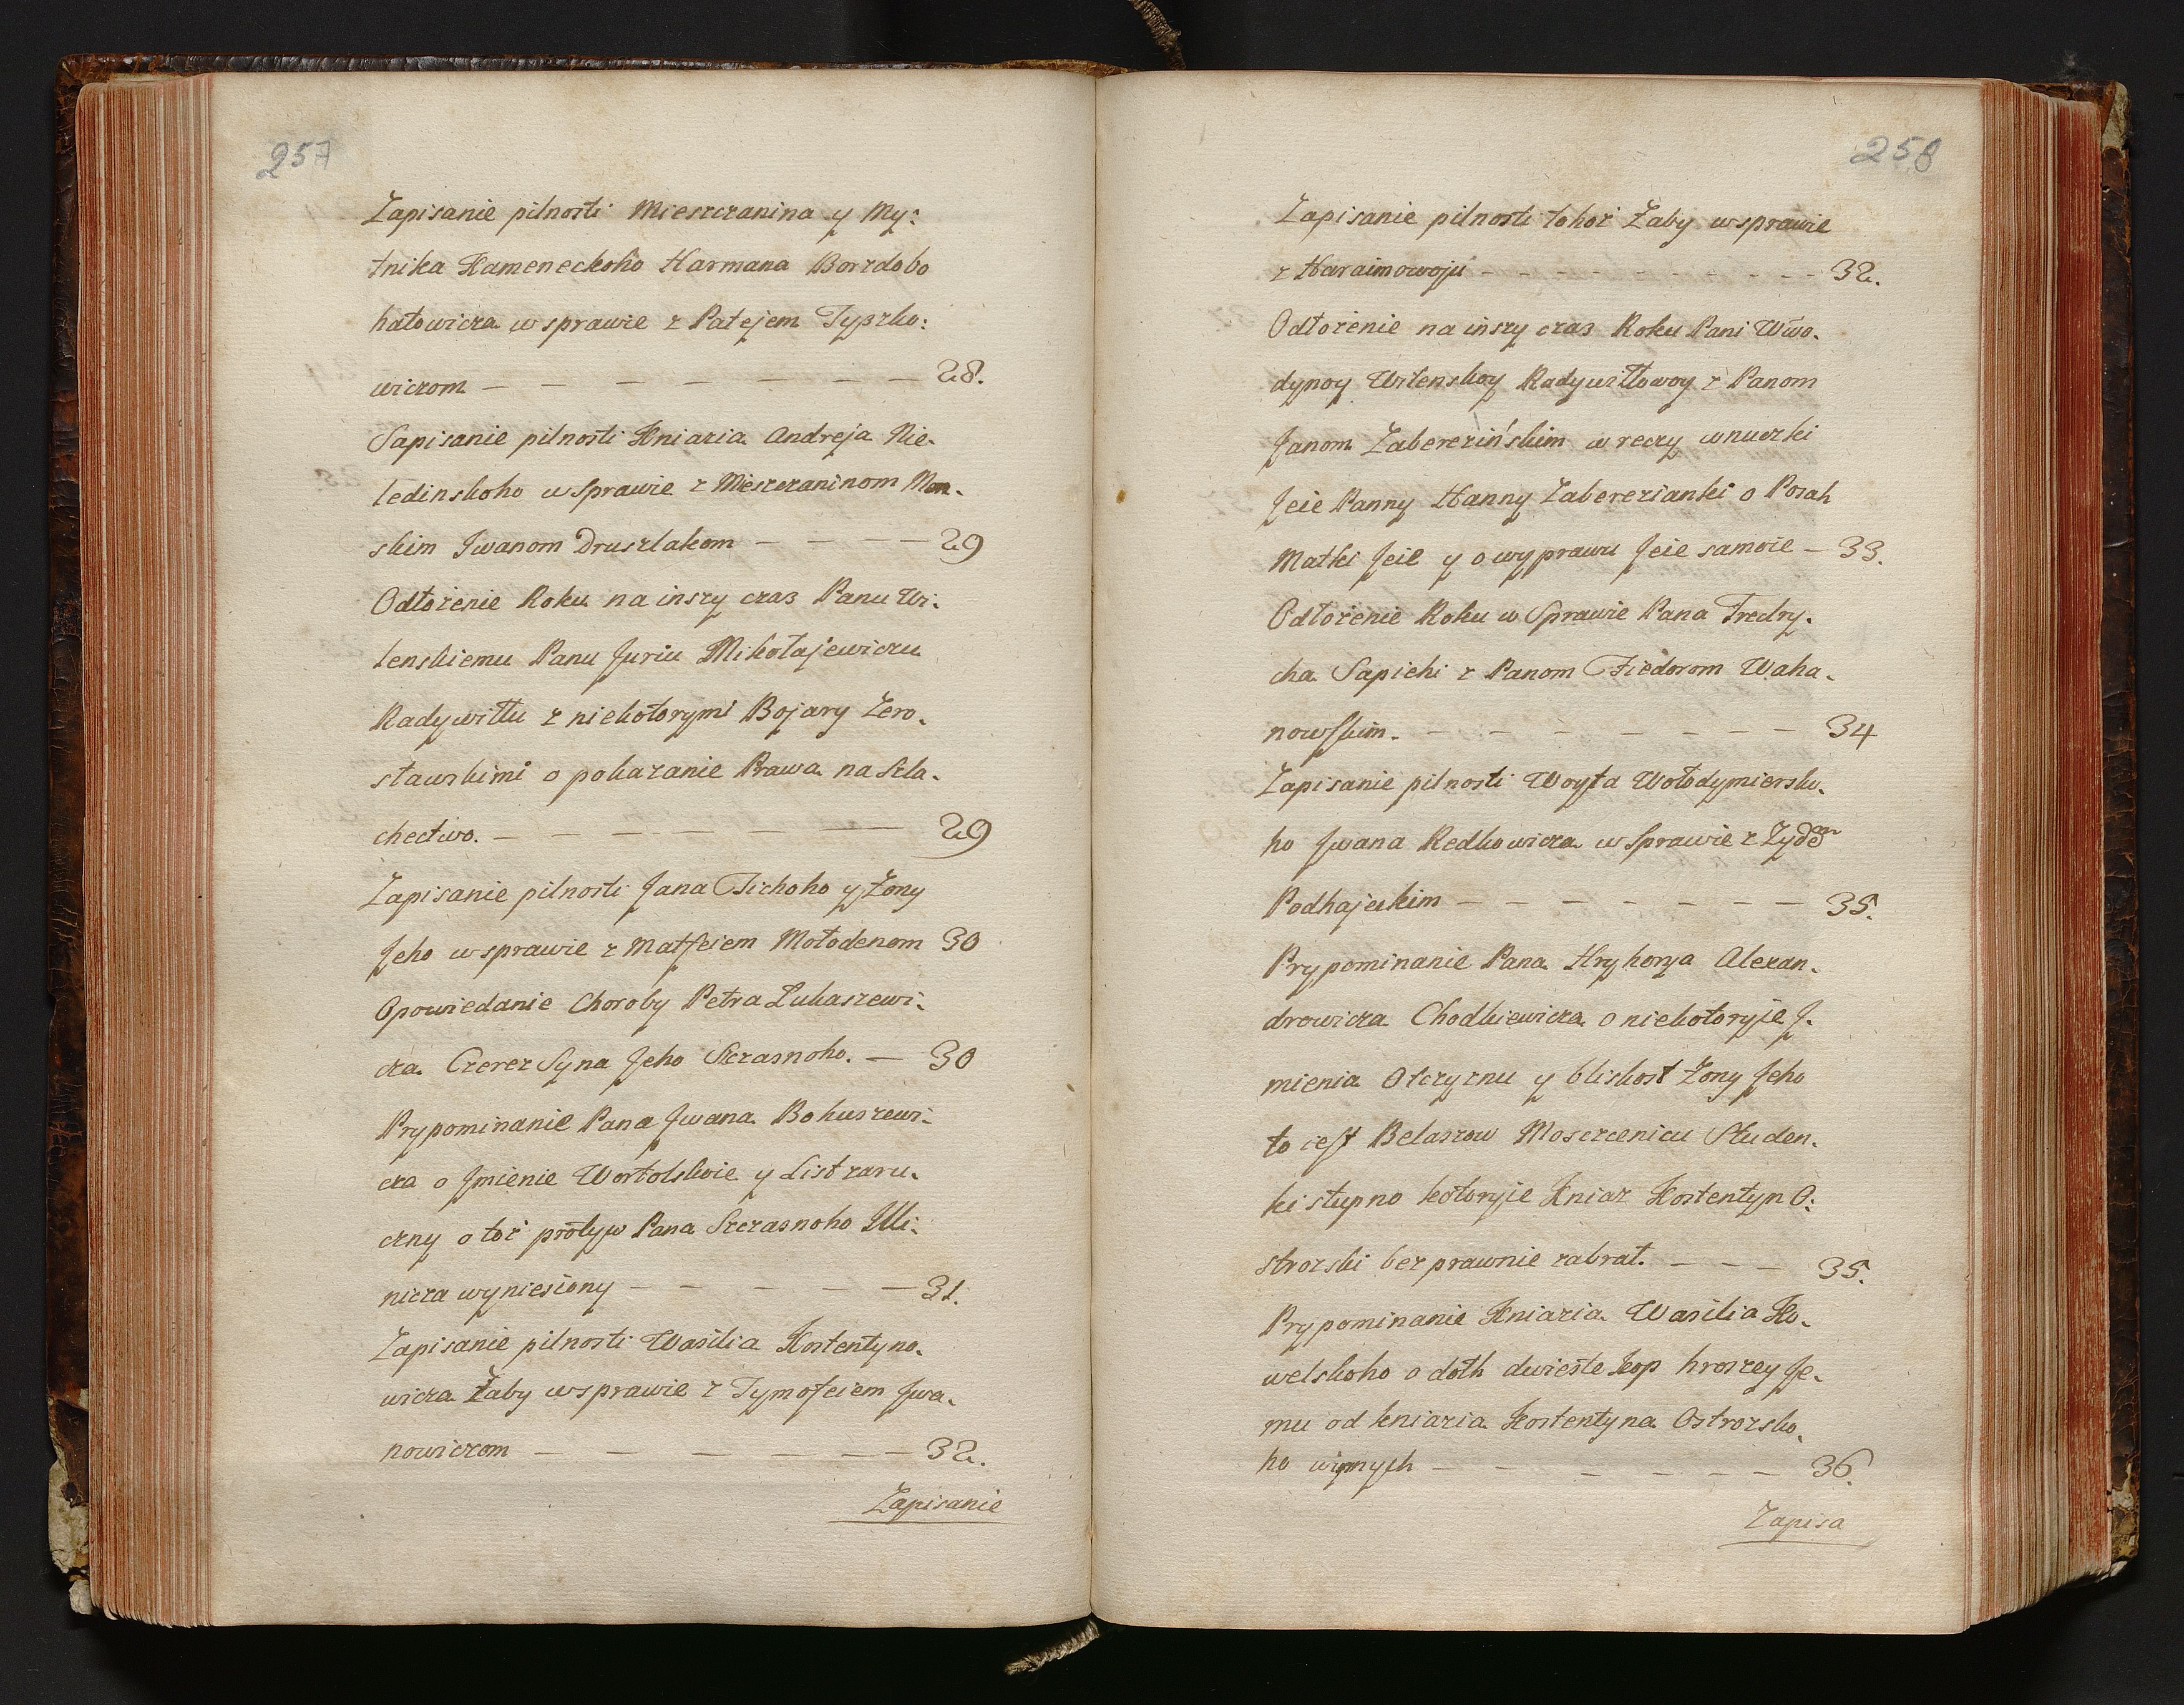 257
Zapisanie pilnosti Mieszczanina y My:
tnika Kameneckoho Harmana Borzdobo
hatowicza w sprawie z Patejem Tyszko:
wiczom — — — — — — — 28.
Sapisanie pilnosti Kniazia Andreja Nie-
ledinskoho w Sprawie z Mieszczaninom Men-
skim Jwanom Druszlakom — — — — 29
Odłożenie Roku na inszy czas Panu Wi-
lenskiemu Panu Juriu Mikołajewiczu
Radywiłłu z niekotorymi Bojary Zero-
sławskimi o pokazanie Prawa na Szla-
chectwo. — — — — — — 29
Zapisanie pilnosti Jana Tichoho y Żony
Jeho w sprawie z Matfeiem Mołodenom 30
Opowiedanie Choroby Petra Łukaszewi-
cza Czerez Syna Jeho Szczasnoho. — 30
Prypominanie Pana Jwana Bohuszewi-
cza o Jmienie Wortolskoie y List zaru-
czny o toż protyw Pana Szczasnoho Illi-
nicza wyniesiony — — — — — 31.
Zapisanie pilnosti Wasilia Kostentyno-
wicza Żaby w sprawie z Tymofeiem Jwa-
nowiczom — — — — — — 32.
Zapisanie
258
Zapisanie pilnosti tohoż Żaby w sprawie
z Haraimowoju — — — — — — — — — 32.
Odłożenie na inszy czas Roku Pani Wwo-
dynoy Wilenskoy Radywiłłowoy z Panom
Janom Zaberezińskim w reczy wnuczki
Jeie Panny Hanny Zaberezianki o Posah
Matki Jeie y o wyprawu Jeie samoie — 33.
Odłożenie Roku w Sprawie Pana Fredry-
cha Sapiehi z Panom Fiedorom Waha-
nowskim. — — — — — — — 34
Zapisanie pilnosti Woyta Wołodymiersko-
ho Jwana Redkowicza w Sprawie z Zydom
Podhajeckim — — — — — — — 35.
Prypominanie Pana Hryhorya Alexan-
drowicza Chodkiewicza o niekotoryje J-
mienia Otczyznu y bliskost Żony Jeho
to iest Belaszow Moszczenicu Studen-
ki stupno kotoryie Kniaz Kostentyn O:
strozski bezprawnie zabrał. — — — 35.
Prypominanie Kniazia Wasilia Ko-
welskoho o dołh dwieste kop hroszey Je-
mu od kniazia Kostentyna Ostrozsko-
ho winnych — — — — — — 36.
Zapisa